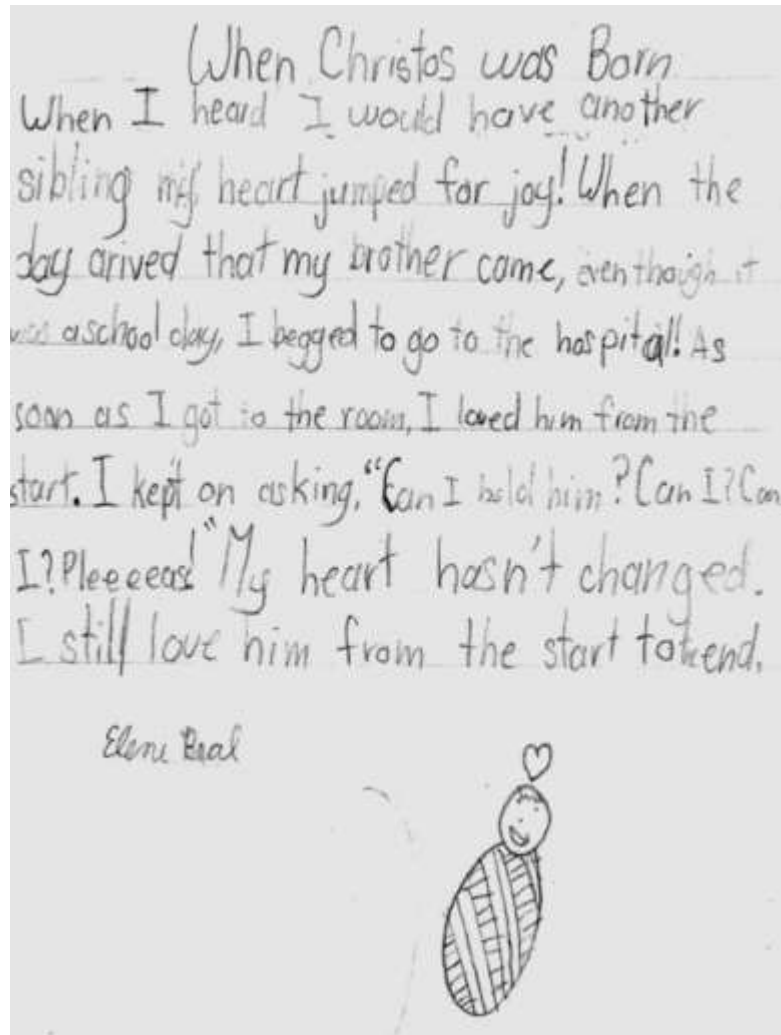 When Christos was Born
When I heard I would have another
sibling my heart jumped for joy! When the
day arived that my brother came, even though it
was a school day, I begged to go to the hospital! As
soon as I got to the room, I loved him from the
start. I kept on asking, "Can I hold him? Can I? Can
I? Pleeeeas!" My heart hasn't changed.
I still love him from the start to the end.
Eleni